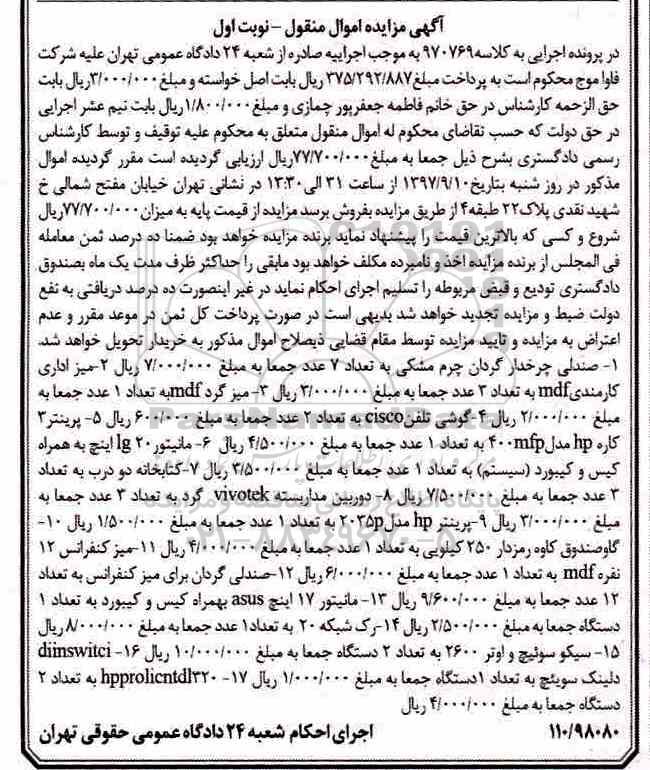 آگهی مزایده اموال منقول - نوبت اول
در پرونده اجرایی به کلاسه ۹۷۰۷۶۹ به موجب اجراییه صادره از شعبه ۲۴ دادگاه عمومی تهران علیه شرکت
فاوا موج محکوم است به پرداخت مبلغ ۳۷۵/۲۹۲/۸۸۷ ریال بابت اصل خواسته و مبلغ ۳/۰۰۰/۰۰۰ریال بابت
حق الزحمه کارشناس در حق خانم فاطمه جعفرپور چمازی و مبلغ ۱/۸۰۰/۰۰۰ریال بابت نیم عشر اجرایی
در حق دولت که حسب تقاضای محکوم له اموال منقول متعلق به محکوم علیه توقیف و توسط کارشناس
رسمی دادگستری بشرح ذیل جمعا به مبلغ ۷۷/۷۰۰/۰۰۰ریال ارزیابی گردیده است مقرر گردیده اموال
مذکور در روز شنبه بتاریخ ۱۳۹۷/۹/۱۰ از ساعت ۳۱ الی ۱۳:۳۰ در نشانی تهران خیابان مفتح شمالی خ
شهید نقدی پلاک ۲۲ طبقه ۴ از طریق مزایده بفروش برسد مزایده از قیمت پایه به میزان ۷۷/۷۰۰/۰۰۰ریال
شروع و کسی که بالاترین قیمت را پیشنهاد نماید برنده مزایده خواهد بود ضمنا ده درصد ثمن معامله
فی المجلس از برنده مزایده اخذ و نامبرده مکلف خواهد بود مابقی را حداکثر ظرف مدت یک ماه بصندوق
دادگستری تودیع و قبض مربوطه را تسلیم اجرای احکام نماید در غیر اینصورت ده درصد دریافتی به نفع
دولت ضبط و مزایده تجدید خواهد شد بدیهی است در صورت پرداخت کل ثمن در موعد مقرر و عدم
اعتراض به مزایده و تایید مزایده توسط مقام قضایی ذیصلاح اموال مذکور به خریدار تحویل خواهد شد.
۱- صندلی چرخدار گردان چرم مشکی به تعداد ۷ عدد جمعا به مبلغ ۷/۰۰۰/۰۰۰ ریال ۲-میز اداری
کارمندی mdf به تعداد ۳ عدد جمعا به مبلغ ۳/۰۰۰/۰۰۰ ریال ۳- میز گرد mdf به تعداد ۱ عدد جمعا به
مبلغ ۲/۰۰۰/۰۰۰ ریال ۴-گوشی تلفن cisco به تعداد ۲ عدد جمعا به مبلغ ۶۰۰/۰۰۰ ریال ۵- پرینتر ۳
کاره hp مدل ۴۰۰mfp به تعداد ۱ عدد جمعا به مبلغ ۴/۵۰۰/۰۰۰ ریال ۶- مانیتور lg ۲۰ اینچ به همراه
کیس و کیبورد (سیستم) به تعداد ۱ عدد جمعا به مبلغ ۳/۵۰۰/۰۰۰ ریال ۷-کتابخانه دو درب به تعداد
۳ عدد جمعا به مبلغ ۷/۵۰۰/۰۰۰ ریال ۸- دوربین مداربسته vivotek گرد به تعداد ۳ عدد جمعا به
مبلغ ۳/۰۰۰/۰۰۰ ریال ۹-پرینتر hp مدل ۲۰۳۵p به تعداد ۱ عدد جمعا به مبلغ ۱/۵۰۰/۰۰۰ ریال ۱۰-
گاوصندوق کاوه رمزدار ۲۵۰ کیلویی به تعداد ۱ عدد جمعا به مبلغ ۴/۰۰۰/۰۰۰ ریال ۱۱-میز کنفرانس ۱۲
نفره mdf به تعداد ۱ عدد جمعا به مبلغ ۶/۰۰۰/۰۰۰ ریال ۱۲-صندلی گردان برای میز کنفرانس به تعداد
۱۲ عدد جمعا به مبلغ ۹/۶۰۰/۰۰۰ ریال ۱۳- مانیتور ۱۷ اینچ asus بهمراه کیس و کیبورد به تعداد ۱
دستگاه جمعا به مبلغ ۲/۵۰۰/۰۰۰ ریال ۱۴-رک شبکه ۲۰ به تعداد ۱ عدد جمعا به مبلغ ۸/۰۰۰/۰۰۰ ریال
۱۵- سیکو سوئیچ و اوتر ۲۶۰۰ به تعداد ۲ دستگاه جمعا به مبلغ ۱۰/۰۰۰/۰۰۰ ریال ۱۶- diinswitci
دلینک سویئچ به تعداد ۱دستگاه جمعا به مبلغ ۱/۰۰۰/۰۰۰ ریال ۱۷- hpprolicntdl۳۲۰ به تعداد ۲
دستگاه جمعا به مبلغ ۴/۰۰۰/۰۰۰ ریال
۱۱۰/۹۸۰۸۰ اجرای احکام شعبه ۲۴ دادگاه عمومی حقوقی تهران